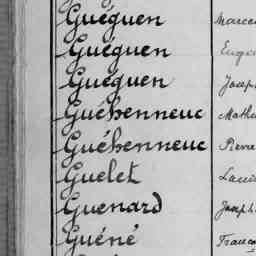 Guéguen Marce
Guéguen Euge
Guéguen Josep
Guéhenneuc Mathu
Guéhenneuc Pierre
Guelet Louis
Guenard Joseph
Guéné Franç